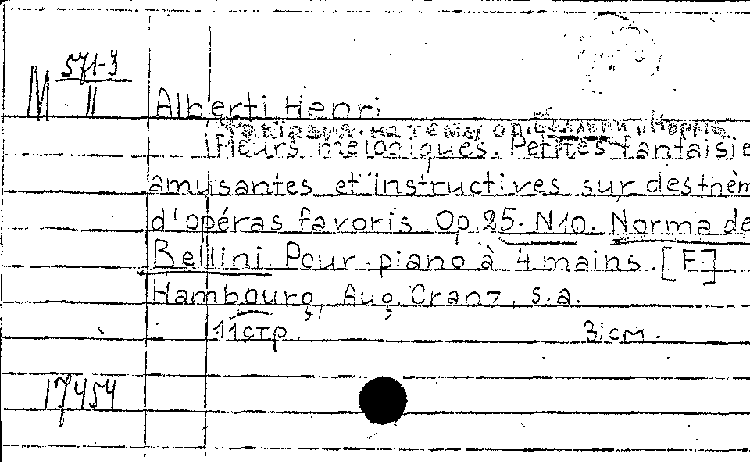 M 571-3
II
Alberti Henri
на тему оп. Беллини "Норма
Fleurs mélodiques. Petites fantaisie
amusantes et instructives sur des thèm
d'opéras favoris. Op. 25. N10. Norma de
Bellini. Pour piano à 4 mains. [E]
Hambourg, Aug. Cranz, s.a.
11 стр. 3 см.
17454